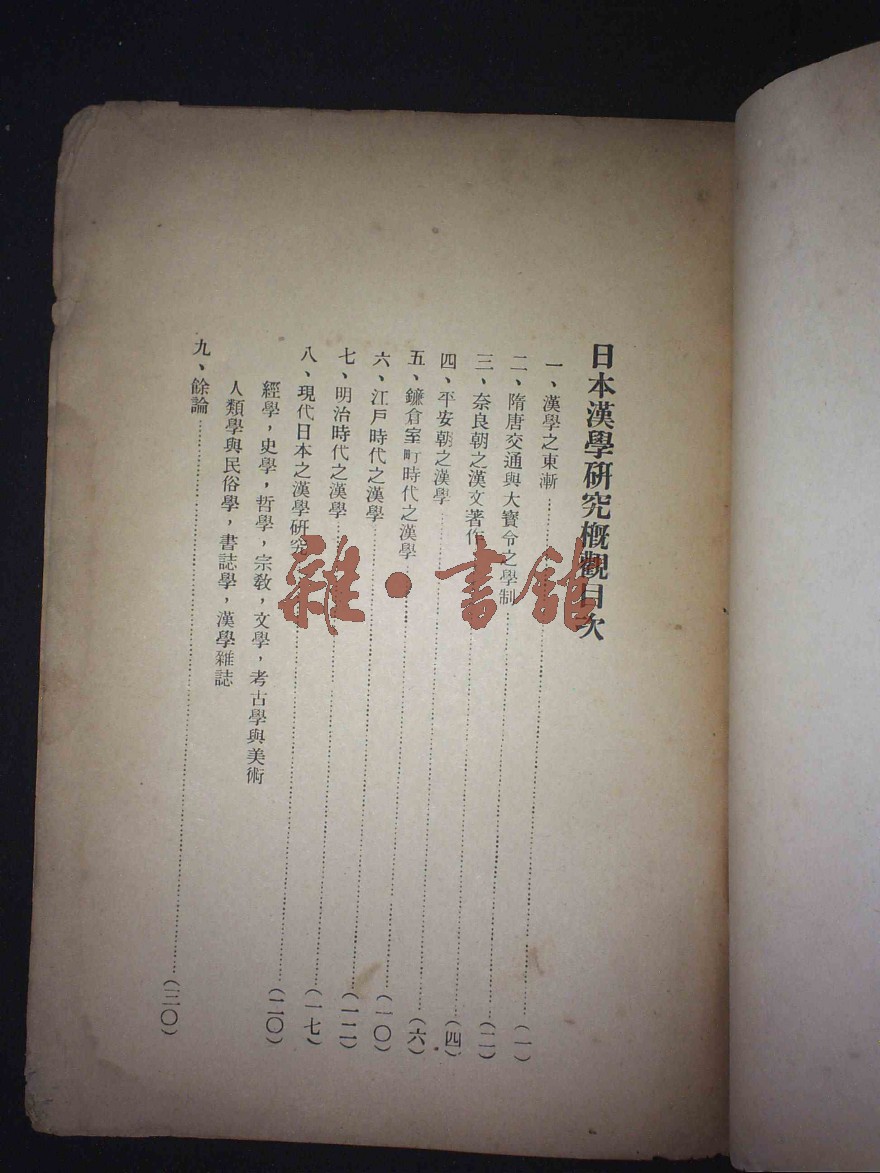 日本漢學研究概觀目次
一、漢學之東漸……………………(一)
二、隋唐交通與大寶令之學制……………………(二)
三、奈良朝之漢文著作……………………(四)
四、平安朝之漢學……………………(六)
五、鐮倉室町時代之漢學……………………(一〇)
六、江戶時代之漢學……………………(一二)
七、明治時代之漢學……………………(一七)
八、現代日本之漢學研究……………………(二〇)
經學，史學，哲學，宗教，文學，考古學與美術
人類學與民俗學，書誌學，漢學雜誌
九、餘論……………………(三〇)
雜·書館